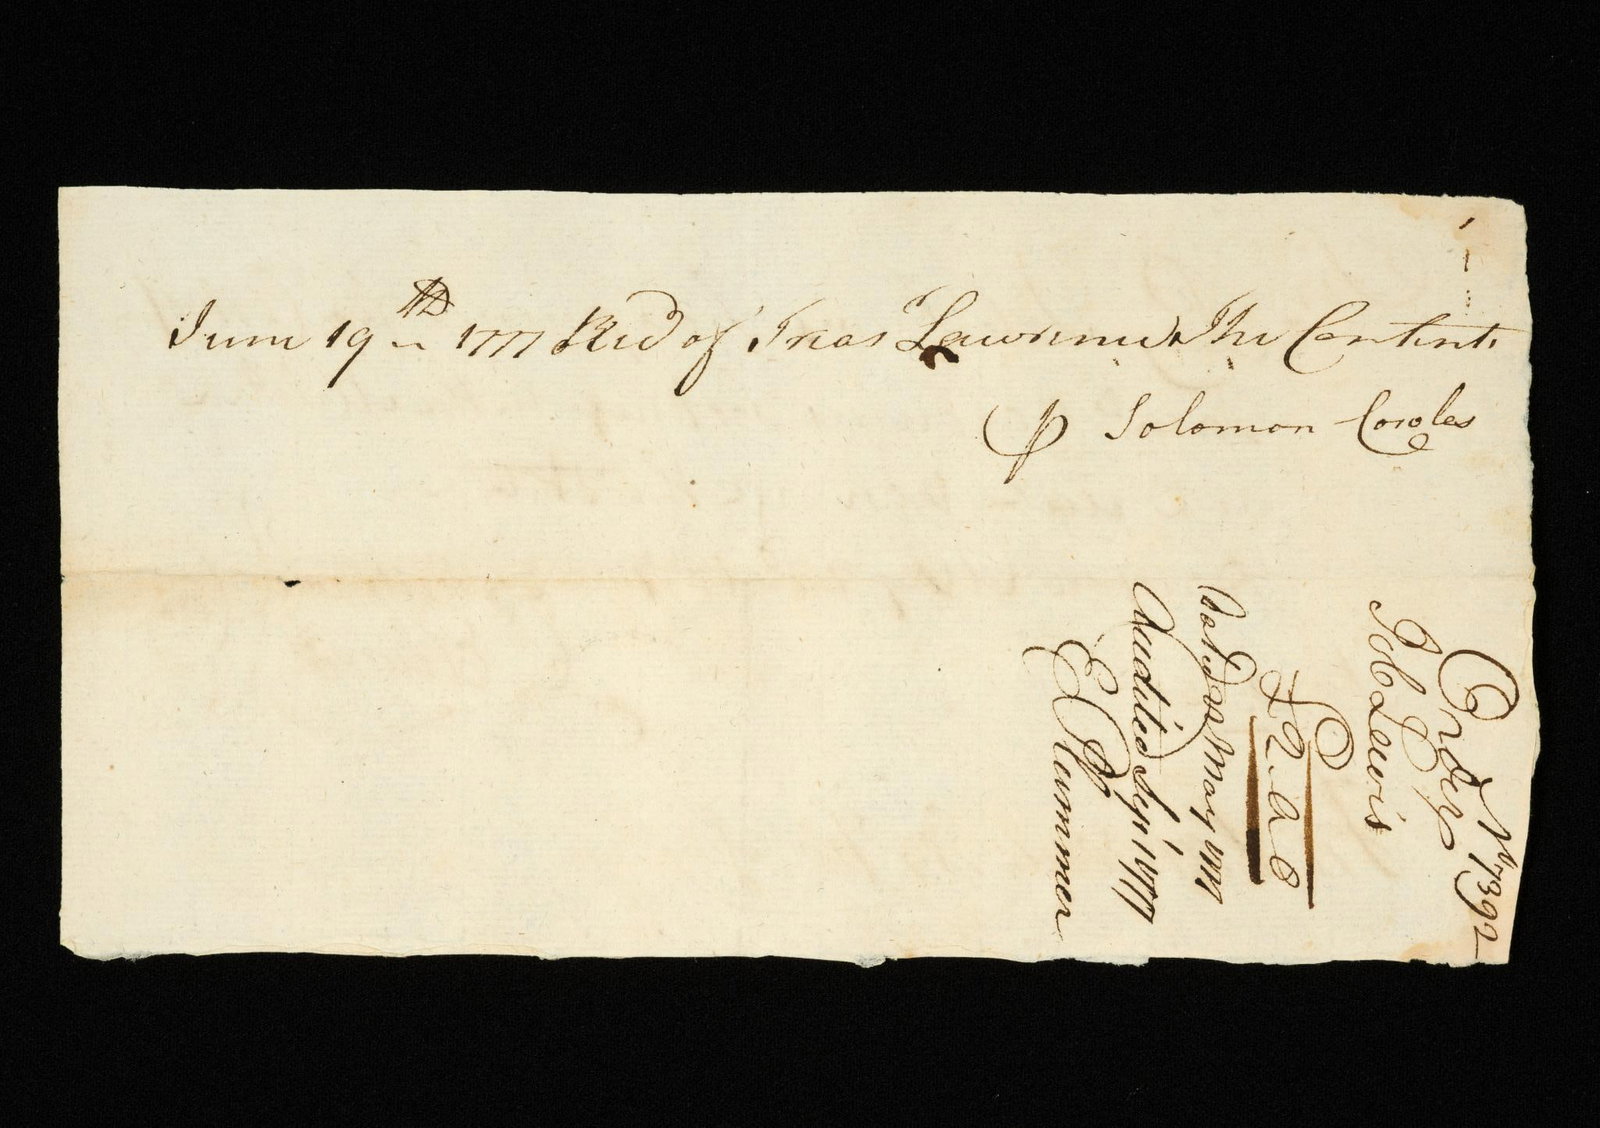 June 19th 1777 Recd of Treas Lawrence the Contents
⅌ Solomon Cowles
No 7392
Order
Job Lewis
£2..2..0
Dated May 1777
Audited Sepr 1777
E Plummer